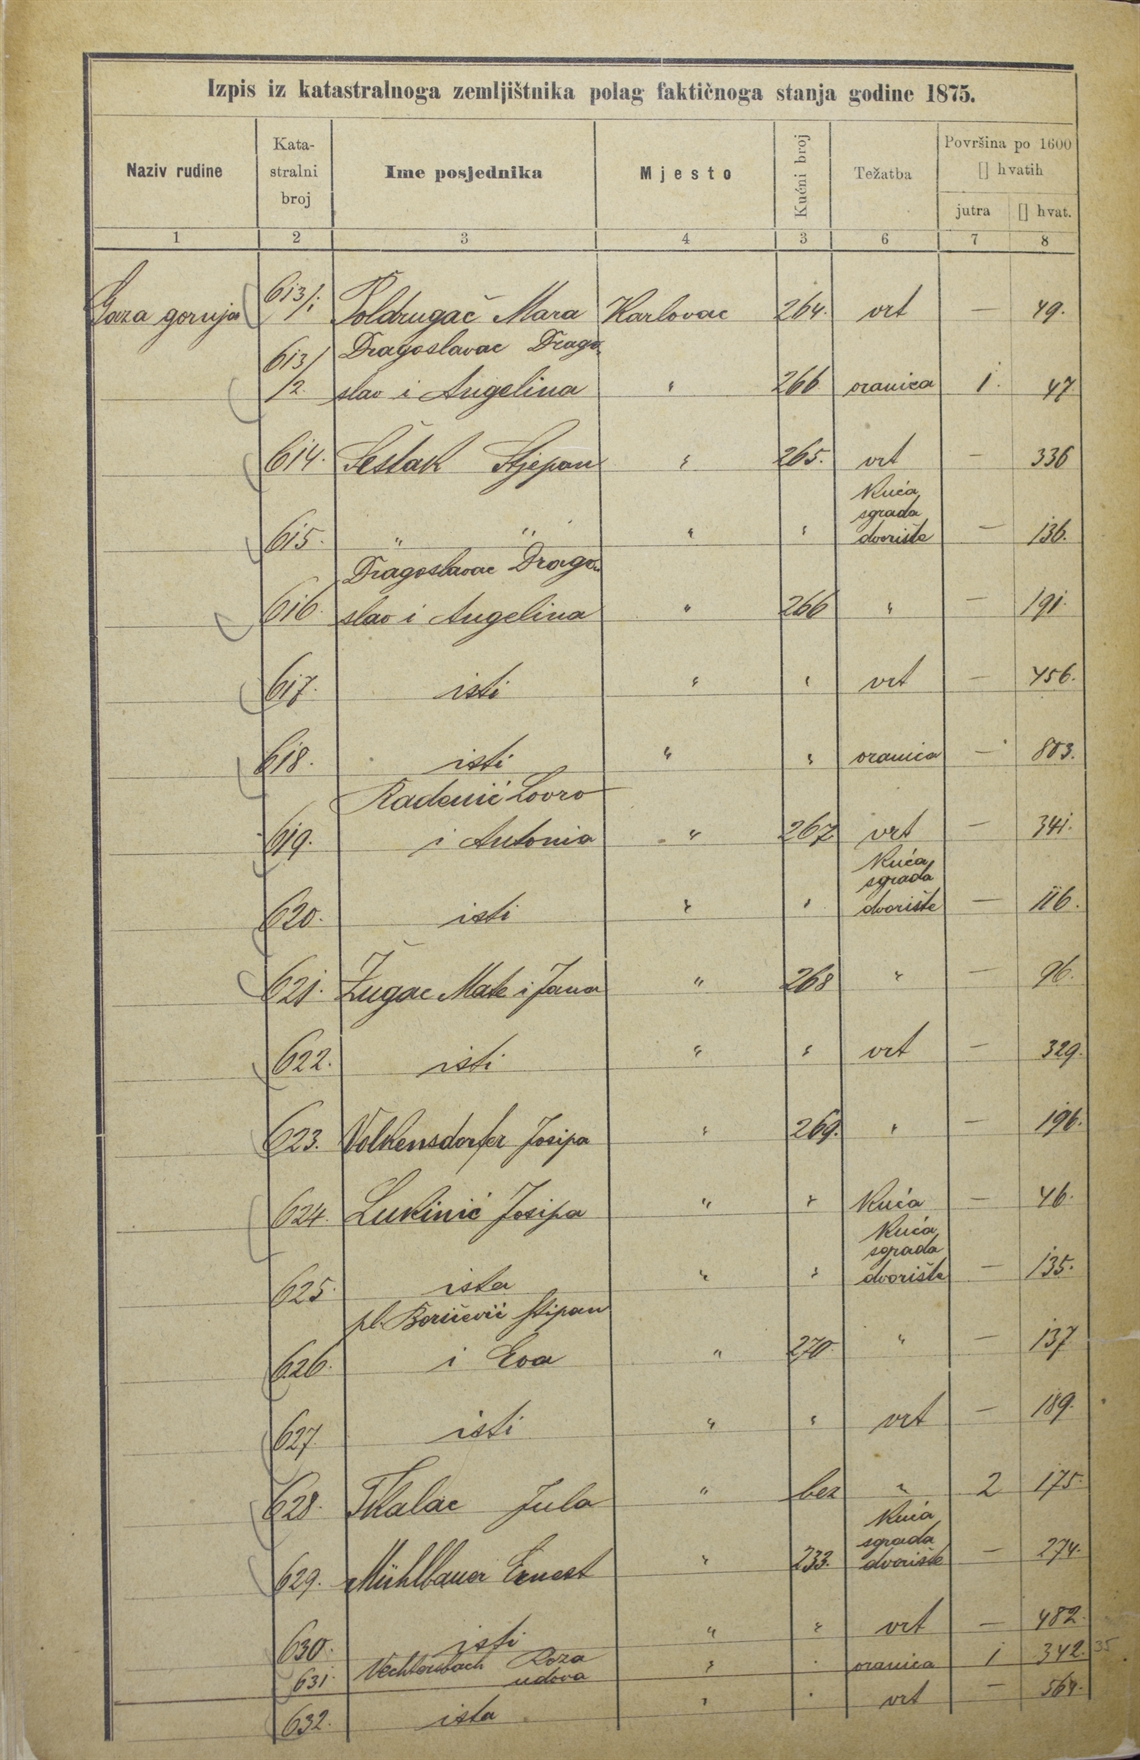 Izpis iz katastralnoga zemljištnika polag faktičnoga stanja godine 1875.
Naziv rudine Kata-stralni broj Ime posjednika Mjesto Kućni broj Težatba Površina po 1600 [] hvatih
jutra [] hvat.
1 2 3 4 3 6 7 8
Gaza gornja 613/1 Poldrugač Mara Karlovac 264. vrt — 49.
Dragoslavac Drago
613/2. slav i Angelina " 266 oranica 1. 47
614. Šestak Stjepan " 265. vrt — 336
Kuća
sgrada
615. " " " " dvorište — 136.
Dragoslavac Drago
616. slav i Angelina " 266 " — 191.
617. isti " " vrt — 456.
618. isti " " oranica — 803.
Radenić Lovro
619. i Antonia " 267 vrt — 341.
Kuća
sgrada
620. isti " " dvorište — 116.
621. Žugac Mate i Jana " 268 " — 96.
622. isti " " vrt — 329.
623. Volkensdorfer Josipa " 269. " — 196.
624. Lukinić Josipa " " Kuća — 46.
Kuća
sgrada
625. ista " " dvorište — 135.
pl. Borićević Stipan
626. i Eva " 270. " — 137
627. isti " " vrt — 189.
628. Tkalac Jula " bez " 2 175.
Kuća
sgrada
629. Mühlbauer Ernest " 233. dvorište — 274.
630. isti " " vrt — 482.
631. Roza " " oranica 1 342. 35
udova
632. ista " " vrt — 564.